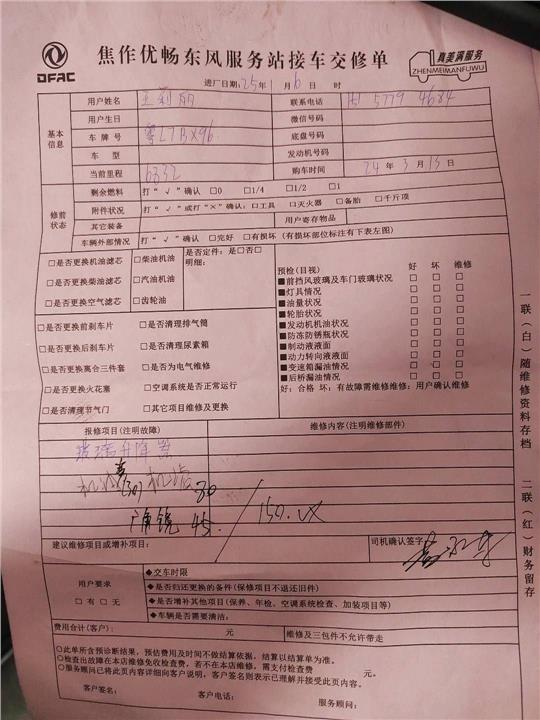 DFAC
焦作优畅东风服务站接车交修单
真美满服务
ZHENMEIMANFUWU
进厂日期:25年1月6日 时
基本信息
用户姓名 王莉丽 联系电话 5779 4684
用户生日 微信号码
车牌号 粤L7BX96 底盘号码
车型 发动机号码
当前里程 6332 购车时间 24年3月13日
修前状态
剩余燃料 打“√”确认 □0 □1/4 □1/2 □1
附件状况 打“√”或打“×”确认:□工具 □灭火器 □备胎 □千斤顶
其它装备 用户寄存物品
车辆外部情况 打“√”确认 □完好 □有损坏(有损坏部位标注有下表左图)
□是否更换机油滤芯 □柴油机油 是否定件:是□否□
明细:
□是否更换柴油滤芯 □汽油机油
□是否更换空气滤芯 □齿轮油
□是否更换前刹车片 □是否清理排气筒
□是否更换后刹车片 □是否清理尿素箱
□是否更换离合三件套 □是否为电气维修
□是否更换火花塞 □空调系统是否正常运行
□是否清理节气门 □其它项目维修及更换
预检(目视) 好 坏 维修
■前挡风玻璃及车门玻璃状况 □ □ □
■灯具情况 □ □ □
■油量状况 □ □ □
■轮胎状况 □ □ □
■发动机机油状况 □ □ □
■防冻防锈瓶状况 □ □ □
■制动液液面 □ □ □
■动力转向液液面 □ □ □
■变速箱漏油情况 □ □ □
■后桥漏油情况 □ □ □
好:合格 坏:有故障需维修维修:用户确认维修
报修项目(注明故障) 维修内容(注明维修部件)
玻璃升降器
机滤 机油 80
广角镜 45. 150.
建议维修项目或增补项目: 司机确认签字
用户要求
□有 □无
◆交车时限
◆是否归还更换的备件(保修项目不退还旧件)
◆是否增补其他项目(保养、年检、空调系统检查、加装项目等)
◆车辆是否需要清洁:
费用合计(客户): 元 维修及三包件不允许带走
○此单所含预诊断结果,预估费用及时间不做结算依据,结算以结算单为准。
○检查出故障在本店维修免收检查费,若不在本店维修,需支付检查费 元。
○服务顾问已将此页内容详细向客户说明,客户签名则表示已理解并接受此页内容。
客户签名: 客户电话: 服务顾问:
一联(白)随维修资料存档
二联(红)财务留存